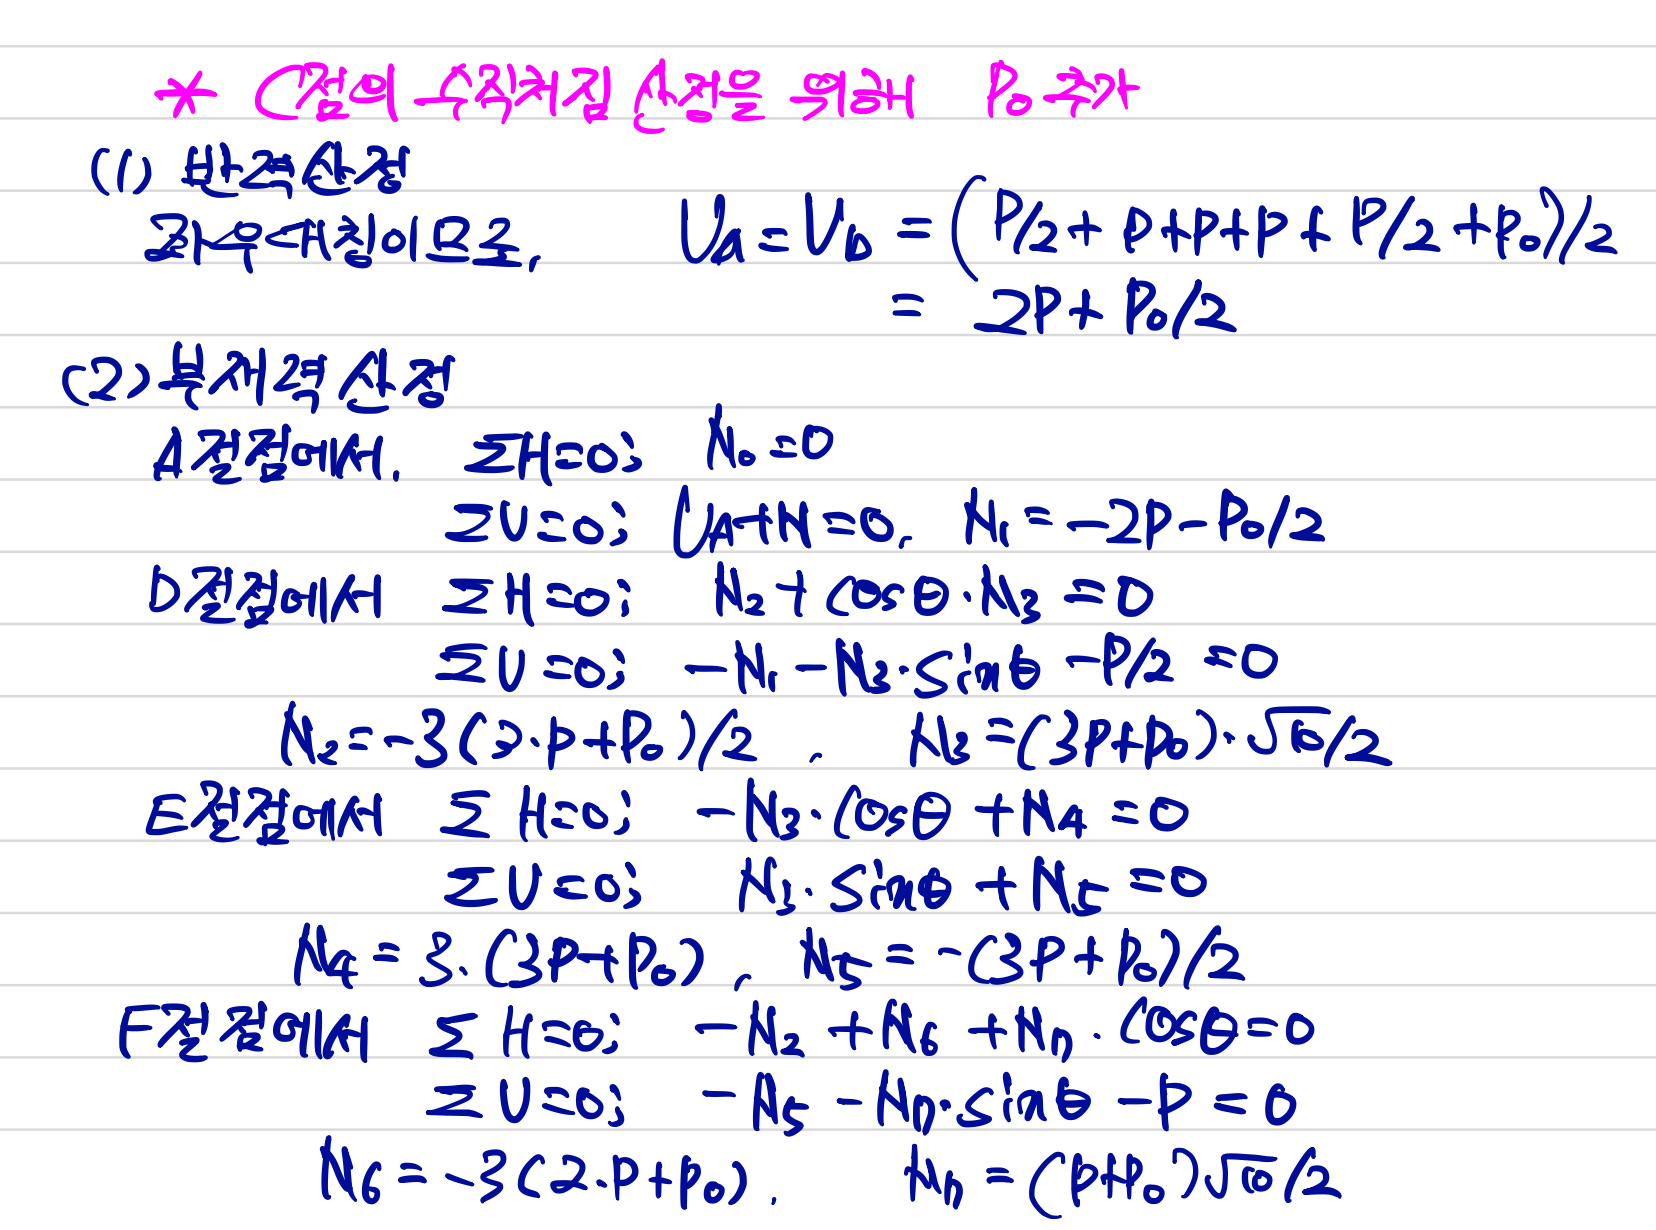 * C점의 수직처짐 산정을 위해 P₀ 추가
(1) 반력산정
좌우대칭이므로, V_A = V_B = (P/2 + P + P + P + P/2 + P₀)/2
= 2P + P₀/2
(2) 부재력 산정
A절점에서, ΣH=0; N₀ = 0
ΣV=0; V_A+N₁=0, N₁ = -2P - P₀/2
D절점에서 ΣH=0; N₂ + cosθ·N₃ = 0
ΣV=0; -N₁ - N₃·sinθ - P/2 = 0
N₂ = -3(3·P+P₀)/2, N₃ = (3P+P₀)·√10/2
E절점에서 ΣH=0; -N₃·cosθ + N₄ = 0
ΣV=0; N₃·sinθ + N₅ = 0
N₄ = 3·(3P+P₀), N₅ = -(3P+P₀)/2
F절점에서 ΣH=0; -N₂ + N₆ + N₇·cosθ = 0
ΣV=0; -N₅ - N₇·sinθ - P = 0
N₆ = -3(2·P+P₀), N₇ = (P+P₀)√10/2